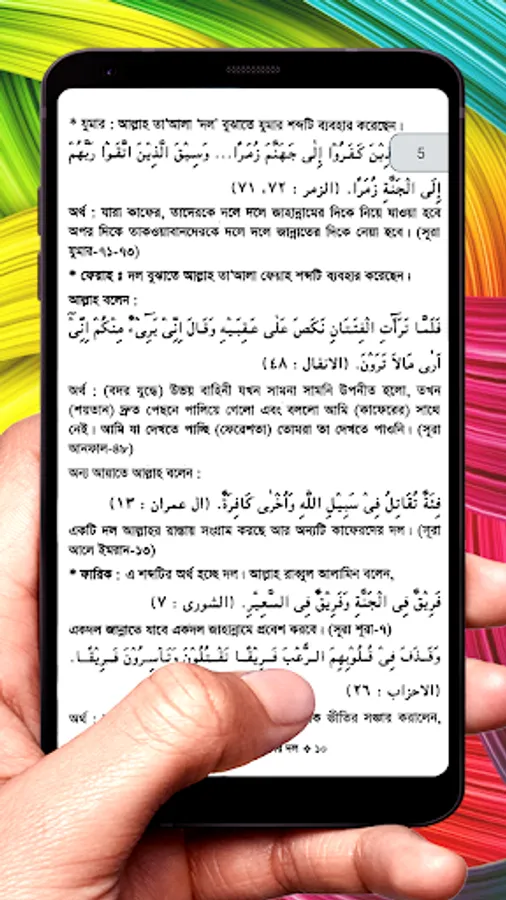 * যুমার : আল্লাহ তা'আলা 'দল' বুঝাতে যুমার শব্দটি ব্যবহার করেছেন।
5
ذِيْنَ كَفَرُوْا إِلٰى جَهَنَّمَ زُمَرًا... وَسِيْقَ الَّذِيْنَ اتَّقَوْا رَبَّهُمْ
إِلَى الْجَنَّةِ زُمَرًا. (الزمر : ٧٢، ٧١)
অর্থ : যারা কাফের, তাদেরকে দলে দলে জাহান্নামের দিকে নিয়ে যাওয়া হবে
অপর দিকে তাকওয়াবানদেরকে দলে দলে জান্নাতের দিকে নেয়া হবে। (সূরা
যুমার-৭১-৭৩)
* ফেয়াহ : দল বুঝাতে আল্লাহ তা'আলা ফেয়াহ শব্দটি ব্যবহার করেছেন।
আল্লাহ বলেন :
فَلَمَّا تَرَآتِ الْفِئَتَانِ نَكَصَ عَلٰى عَقِبَيْهِ وَقَالَ اِنِّىْ بَرِىْءٌ مِنْكُمْ اِنِّىْ
اَرٰى مَالَا تَرَوْنَ. (الانفال : ٤٨)
অর্থ : (বদর যুদ্ধে) উভয় বাহিনী যখন সামনা সামনি উপনীত হলো, তখন
(শয়তান) দ্রুত পেছনে পালিয়ে গেলো এবং বললো আমি (কাফেরের) সাথে
নেই। আমি যা দেখতে পাচ্ছি (ফেরেশতা) তোমরা তা দেখতে পাওনি। (সূরা
আনফাল-৪৮)
অন্য আয়াতে আল্লাহ বলেন :
فِئَةٌ تُقَاتِلُ فِىْ سَبِيْلِ اللّٰهِ وَاُخْرٰى كَافِرَةٌ. (ال عمران : ١٣)
একটি দল আল্লাহর রাস্তায় সংগ্রাম করছে আর অন্যটি কাফেরদের দল। (সূরা
আলে ইমরান-১৩)
* ফারিক : এ শব্দটির অর্থ হচ্ছে দল। আল্লাহ রাব্বুল আলামিন বলেন,
فَرِيْقٌ فِى الْجَنَّةِ وَفَرِيْقٌ فِى السَّعِيْرِ. (الشورى : ٧)
একদল জান্নাতে যাবে একদল জাহান্নামে প্রবেশ করবে। (সূরা শূরা-৭)
وَقَذَفَ فِىْ قُلُوْبِهِمُ الرُّعْبَ فَرِيْقًا تَقْتُلُوْنَ وَتَأْسِرُوْنَ فَرِيْقًا.
(الاحزاب : ٢٦)
অর্থ : ভীতির সঞ্চার করালেন,
দল ❖ ১০